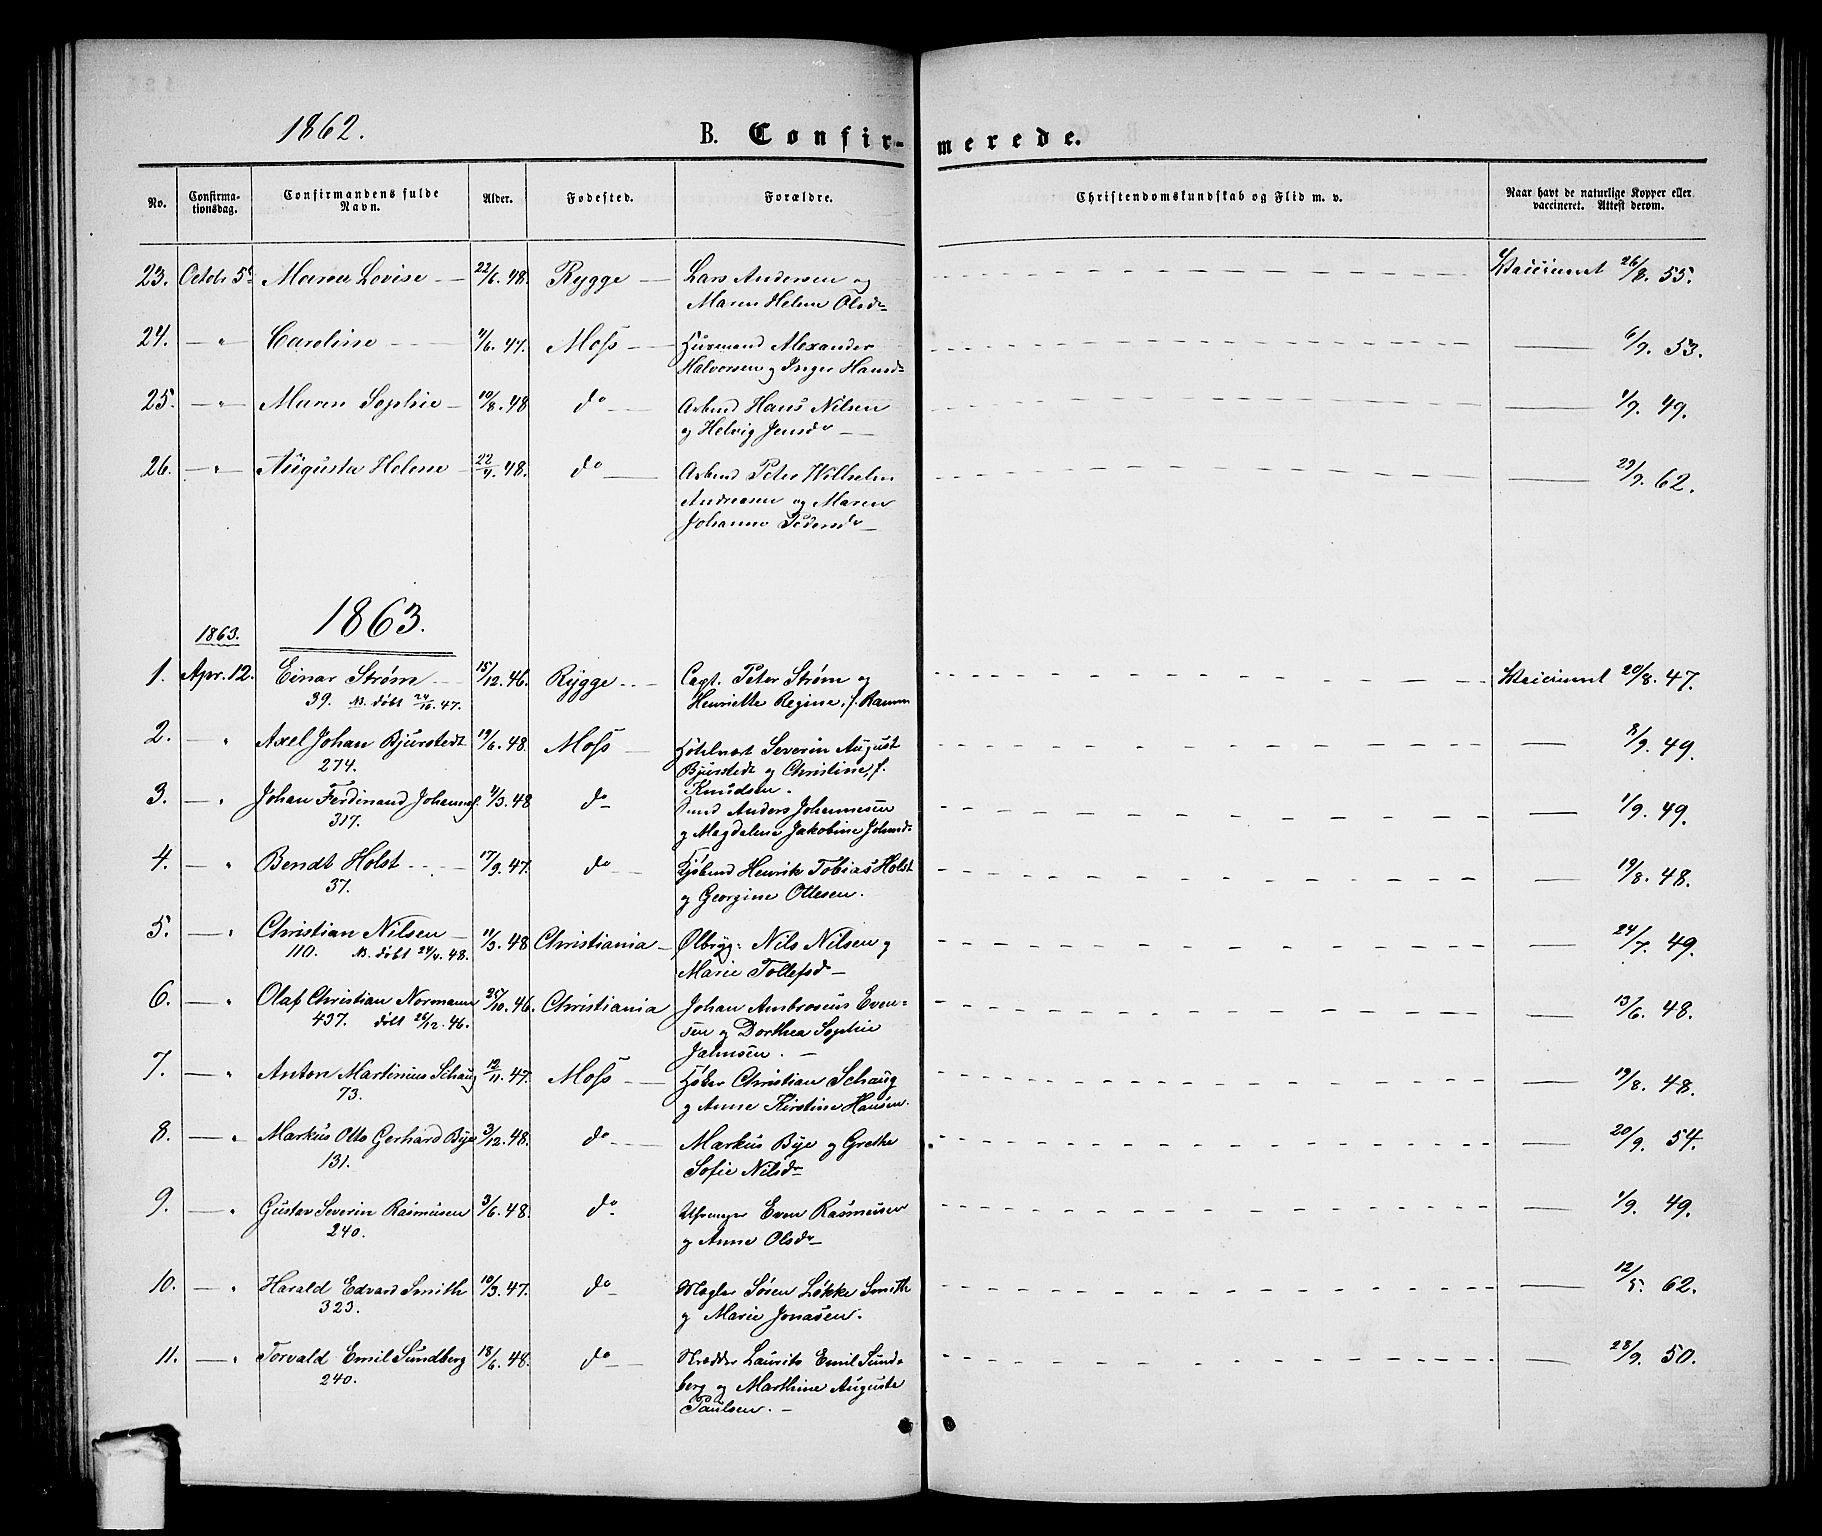 1862.
B. Confir-
merede.
No.
Confirma-
tionsdag.
Confirmandens fulde
Navn.
Alder.
Fødested.
Forældre.
Christendomskundskab og Flid m. v.
Naar havt de naturlige Kopper eller
vaccineret. Attest derom.
23. Octobr 5 Maren Lovise 22/6. 48. Rygge Lars Andersen og Vaccineret 26/8. 55.
Maren Helene Olsdr
24. " Caroline 4/6. 47. Moss Husmand Alexander 6/9. 53.
Halvorsen og Inger Hansdr
25. " Maren Sophie 10/8. 48 do Arbmd Hans Nilsen 1/9. 49.
og Helvig Jensdr
26. " Augusta Helene 22/4. 48. do Arbmd Peter Wilhelm 29/9. 62.
Andreasen og Maren
Johanne Pedersdr
1863.
1863.
1. Apr. 12. Einar Strøm 15/12. 46. Rygge Capt. Peter Strøm og Vaccineret 20/8. 47.
39. NB. døbt 24/10. 47. Henriette Regine, f. Ramm
2. " Axel Johan Bjurstedt 19/6. 48. Moss Hotelvært Severin August 9. 49.
274. Bjurstedt og Christine, f.
Knudsen.
3. " Johan Ferdinand Johannes. 4/3. 48 do Smed Anders Johannesen 1/9. 49.
317. og Magdalene Jakobine Johnsdr
4. " Bendt Holst 17/9. 47. do Kjøbmd Henrik Tobias Holst 19/8. 48.
37. og Georgine Ottesen.
5. " Christian Nilsen 11/3. 48 Christiania Ølbryg: Nils Nilsen og 24/7. 49.
110. NB. døbt 24/4. 48. Marie Tollefsdr
6. " Olaf Christian Normann 25/10. 46. Christiania Johan Ambrosius Even- 13/6. 48.
437. døbt 26/12. 46. sen og Dorthea Sophie
Jahnsen.
7. " Anton Martinius Schaug 12/11. 47. Moss Høker Christian Schaug 19/8. 48.
73. og Anne Kirstine Hansen.
8. " Markus Otto Gerhard Bye 3/12. 48. do Markus Bye og Grethe 20/9. 54.
131. Sofie Nilsdr
9. " Gustav Severin Rasmusen 3/6. 48. do Even Rasmusen 1/9. 49.
240. og Anne Olsdr
10. " Harald Edvard Smith 10/3. 47. do Mægler Søren Løkke Smith 12/5. 62.
323. og Marie Jonasen.
11. " Torvald Emil Sundberg 18/6. 48. do Skrædder Laurits Emil Sund- 28/9. 50.
240. berg og Marthine Auguste
Paulsen.